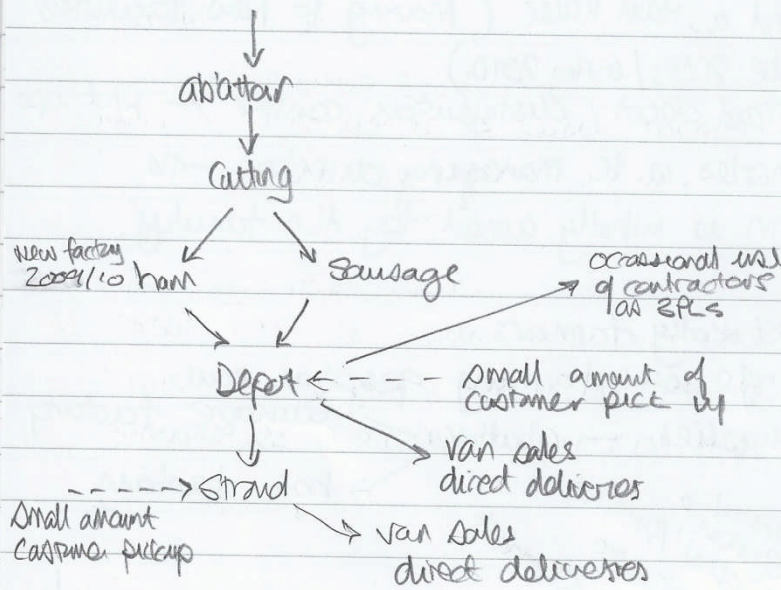 abattoir
Cutting
new factory
2009/10 ham
Sausage
occassional use
of contractors
as 3PLs
Depot
small amount of
customer pick up
van sales
direct deliveries
Stroud
small amount
customer pickup
van sales
direct deliveries